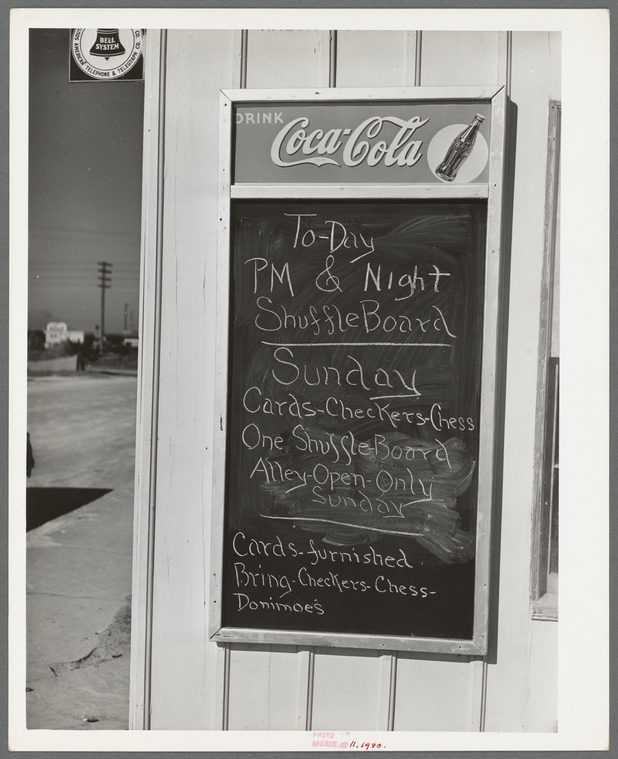 BELL
SYSTEM
AMERICAN TELEPHONE & TELEGRAPH CO.
DRINK
Coca-Cola
To-Day
PM & Night
ShuffleBoard
Sunday
Cards-Checkers-Chess
One Shuffle-Board
Alley-Open-Only
Sunday
Cards-furnished.
Bring-Checkers-Chess-
Donimoes
PHOTO
11.1940.